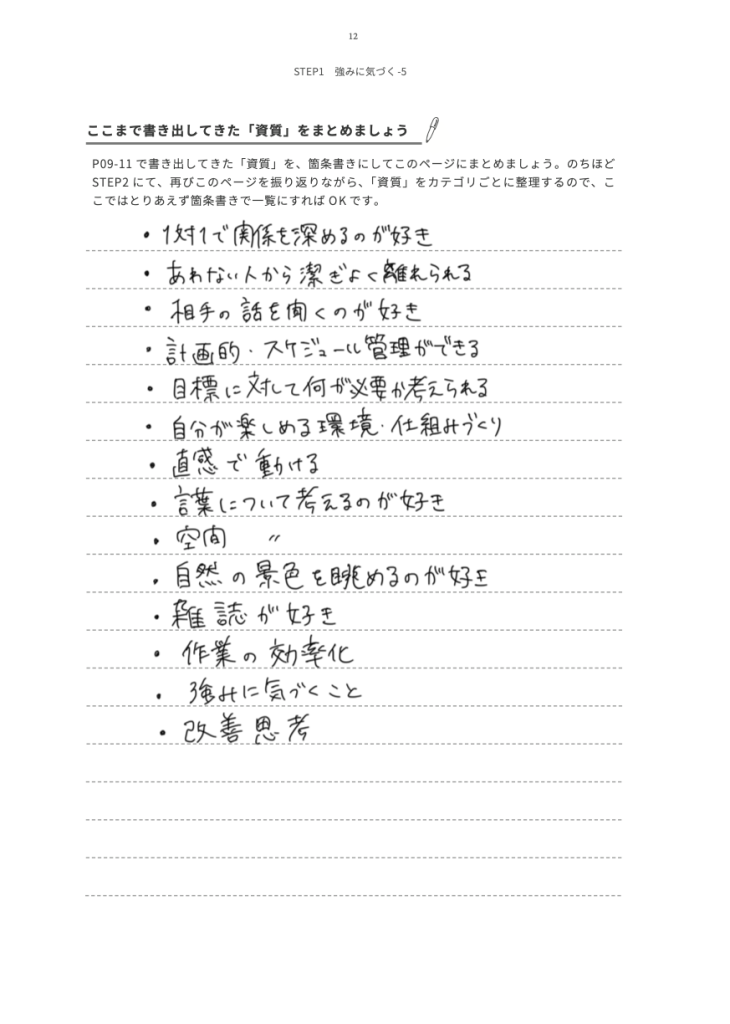 12
STEP1　強みに気づく-5
ここまで書き出してきた「資質」をまとめましょう
P09-11 で書き出してきた「資質」を、箇条書きにしてこのページにまとめましょう。のちほど
STEP2 にて、再びこのページを振り返りながら、「資質」をカテゴリごとに整理するので、こ
こではとりあえず箇条書きで一覧にすれば OK です。
・1対1で関係を深めるのが好き
・あわない人から潔ぎよく離れられる
・相手の話を聞くのが好き
・計画的・スケジュール管理ができる
・目標に対して何が必要か考えられる
・自分が楽しめる環境・仕組みづくり
・直感で動ける
・言葉について考えるのが好き
・空間　〃
・自然の景色を眺めるのが好き
・雑誌が好き
・作業の効率化
・強みに気づくこと
・改善思考